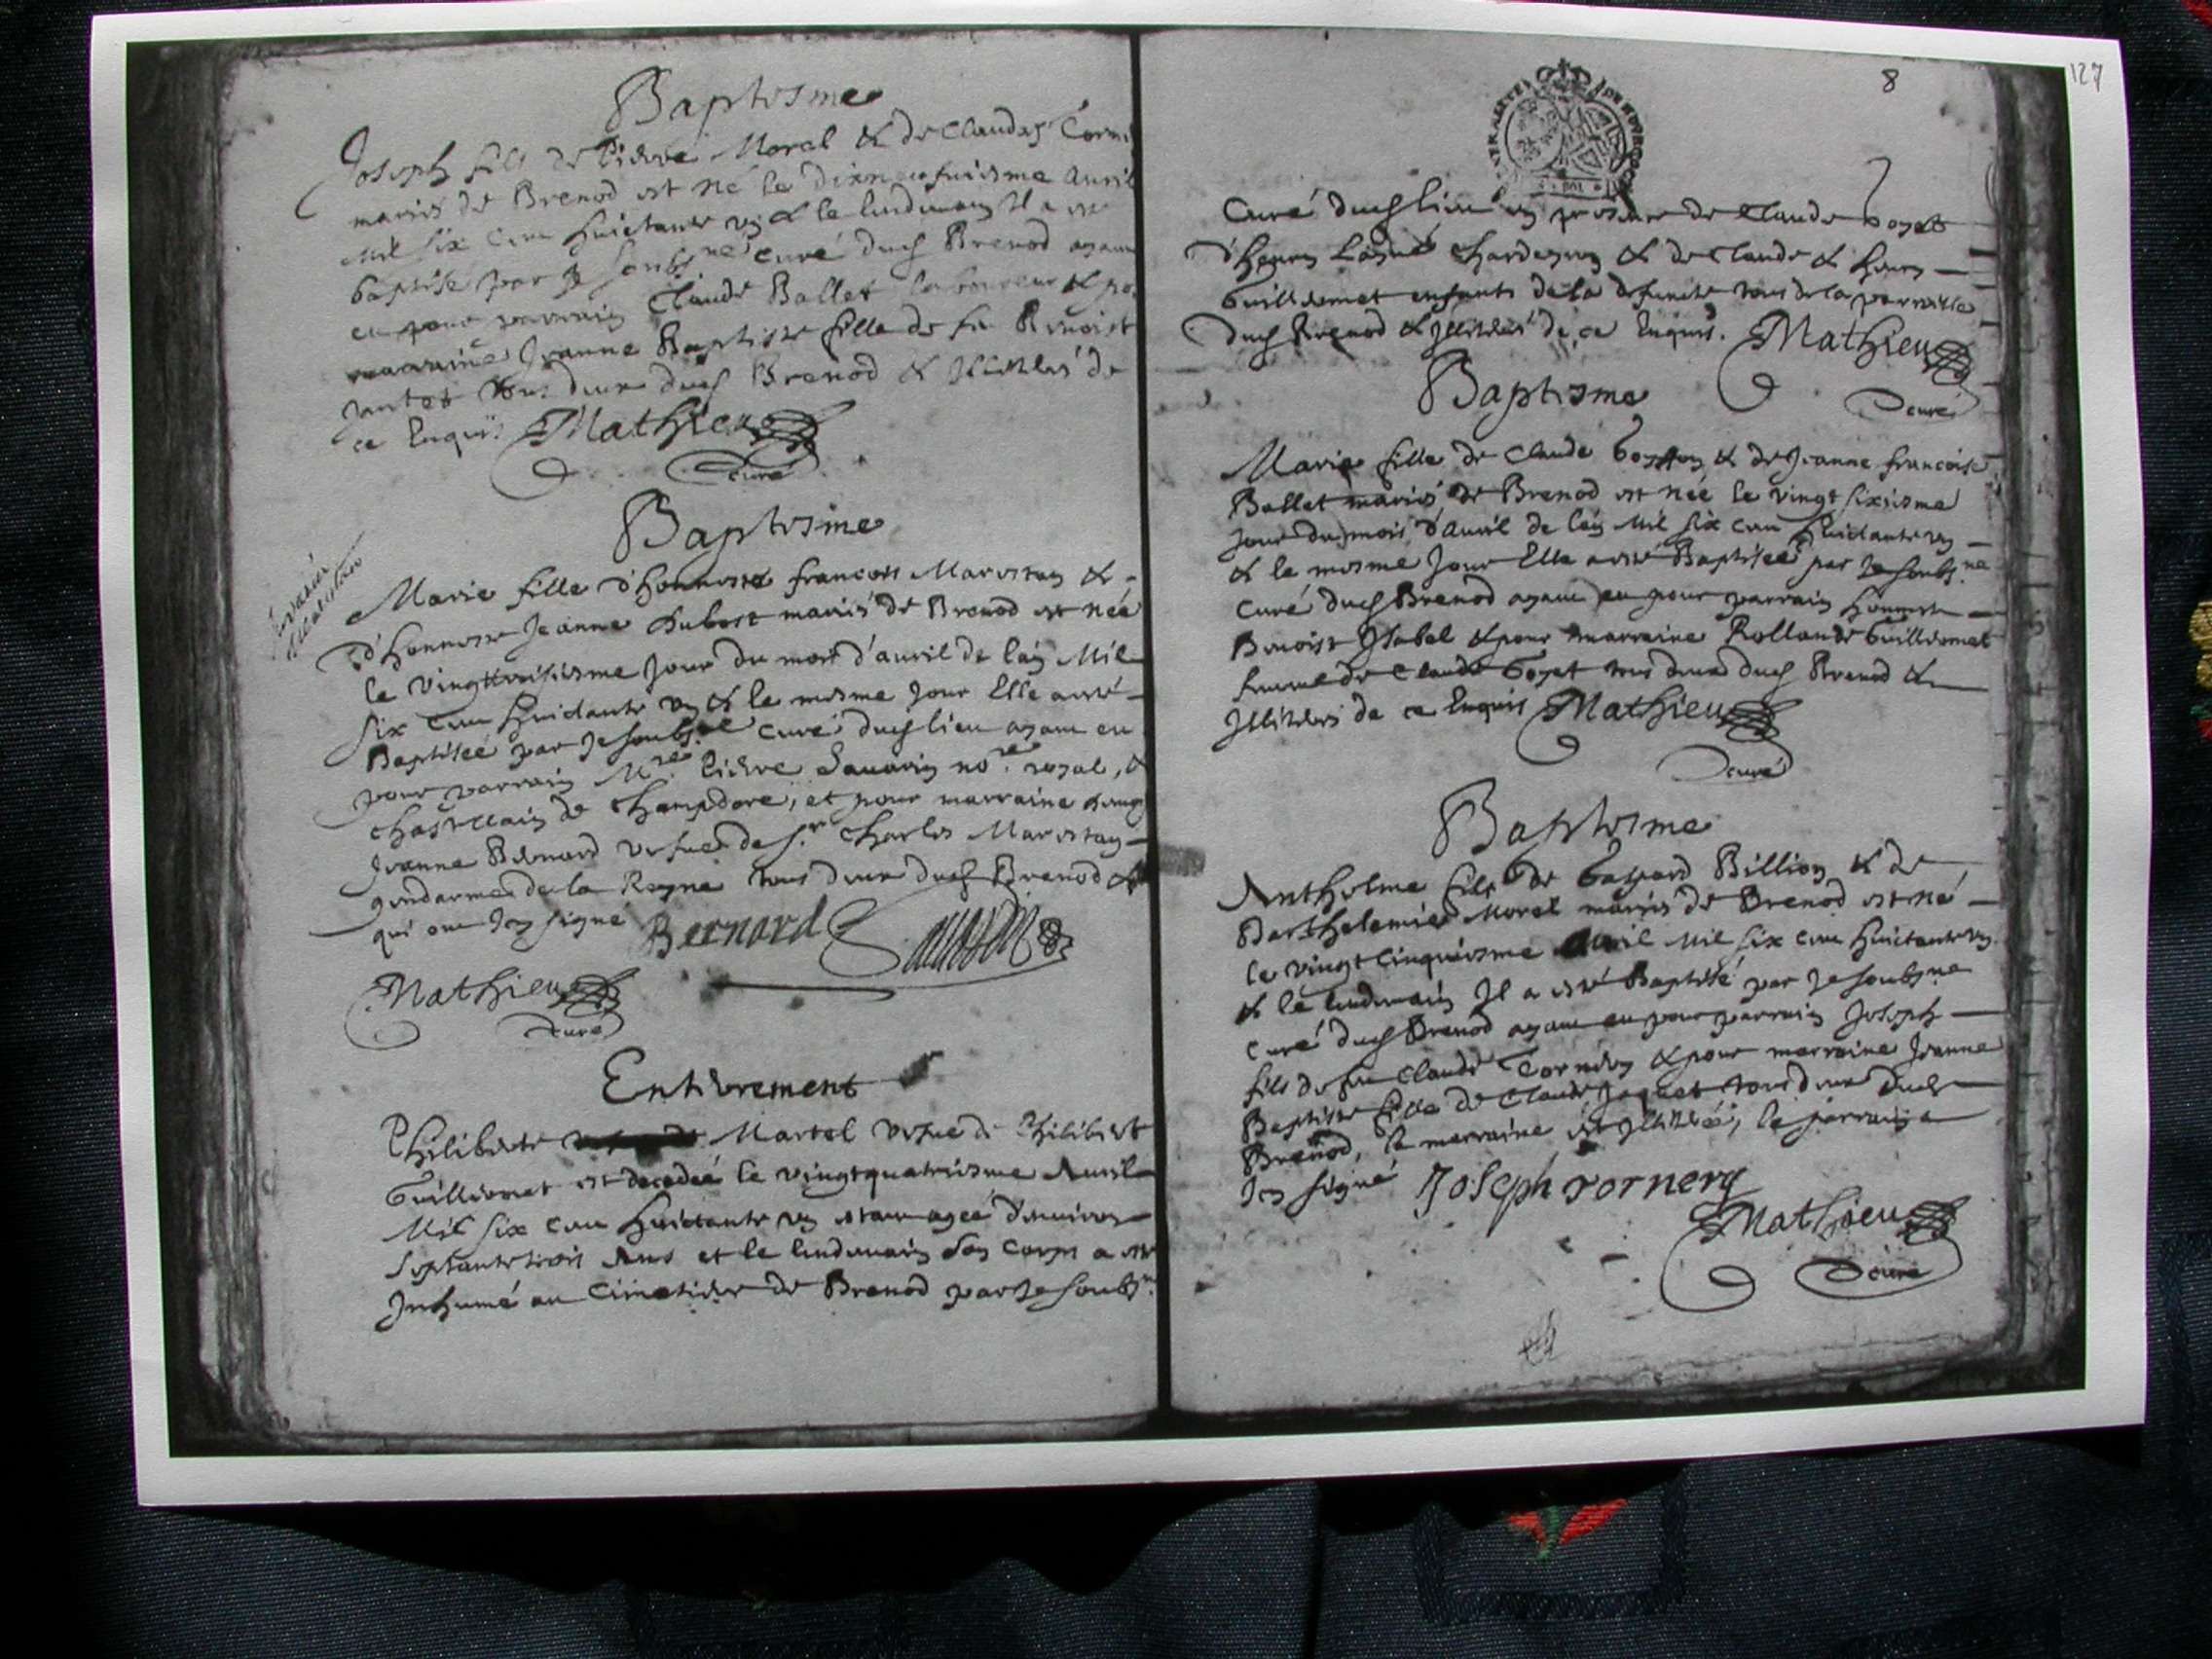 Baptisme
Joseph fils de Pierre Moral & de Clauda Torni
mariés de Brenod est né le dixneufuiesme Auril
mil six cent huictante vn & le lendemain Il a esté
baptisé par Je soubs.né Curé dud Brenod ayant
eu pour parrain Claude Ballet laboureur & po
marraine Jeanne Baptiste fille de fu Benoist
tous deux dud Brenod & Illitérés de
ce Enquis. Mathieu
curé
Baptisme
Marie fille d'honneste francois Marestan &
d'honneste Jeanne Dubost mariés de Brenod est née
le Vingttroisiesme Jour du mois d'auril de lan Mil
six Cent huictante vn & le mesme Jour Elle a esté
Baptisée par Je soubs.né Curé dud lieu ayant eu
pour parrain M.re Pierre Sauarin no.re royal, &
Chastellain de Champdore, et pour marraine
Jeanne Bernard vefue de S.r Charles Marestan
gendarme de la Reyne tous deux dud Brenod &
qui ont Icy signé Bernard Sauarin
Mathieu
curé
Enterrement
Philiberte Martel vefue de Philibert
Guilliomet est decedée le vingtquatriesme Auril
Mil six Cent huictante vn estant agée d'enuiron
Septante trois Ans et le lendemain Son Corps a esté
Inhumé au Cimetiere de Brenod par Je soubs.né
8
127
Curé dud lieu en presence de Claude Goyet
d'henry Chardeyron & de Claude & henry
Guilliomet enfants de la defuncte tous de la parroisse
dud Brenod & Illitérés de ce Enquis. Mathieu
curé
Baptisme
Marie fille de Claude & de Jeanne francoise
Ballet mariés de Brenod est née le vingt sixiesme
Jour du mois d'Auril de lan Mil six cent huictante vn
& le mesme Jour Elle a esté Baptisée par Je soubs.né
Curé dud Brenod ayant eu pour parrain honneste
Benoist Ysabel & pour marraine Rollande Guilliomet
femme de Claude Goyet tous deux dud Brenod &
Illitérés de ce Enquis Mathieu
curé
Baptisme
Anthelme fils de Gaspard Billion & de
Barthelemie Moral mariés de Brenod est né
le vingt cinquiesme Auril Mil six cent huictante vn
& le lendemain Il a esté Baptisé par Je soubs.né
Curé dud Brenod ayant eu pour parrain Joseph
fils de fu Claude Tornery & pour marraine Jeanne
Baptiste fille de Claude tous deux dud
Brenod, la marraine est Illitérée, le parrain a
Icy signé Joseph Tornery
Mathieu
curé